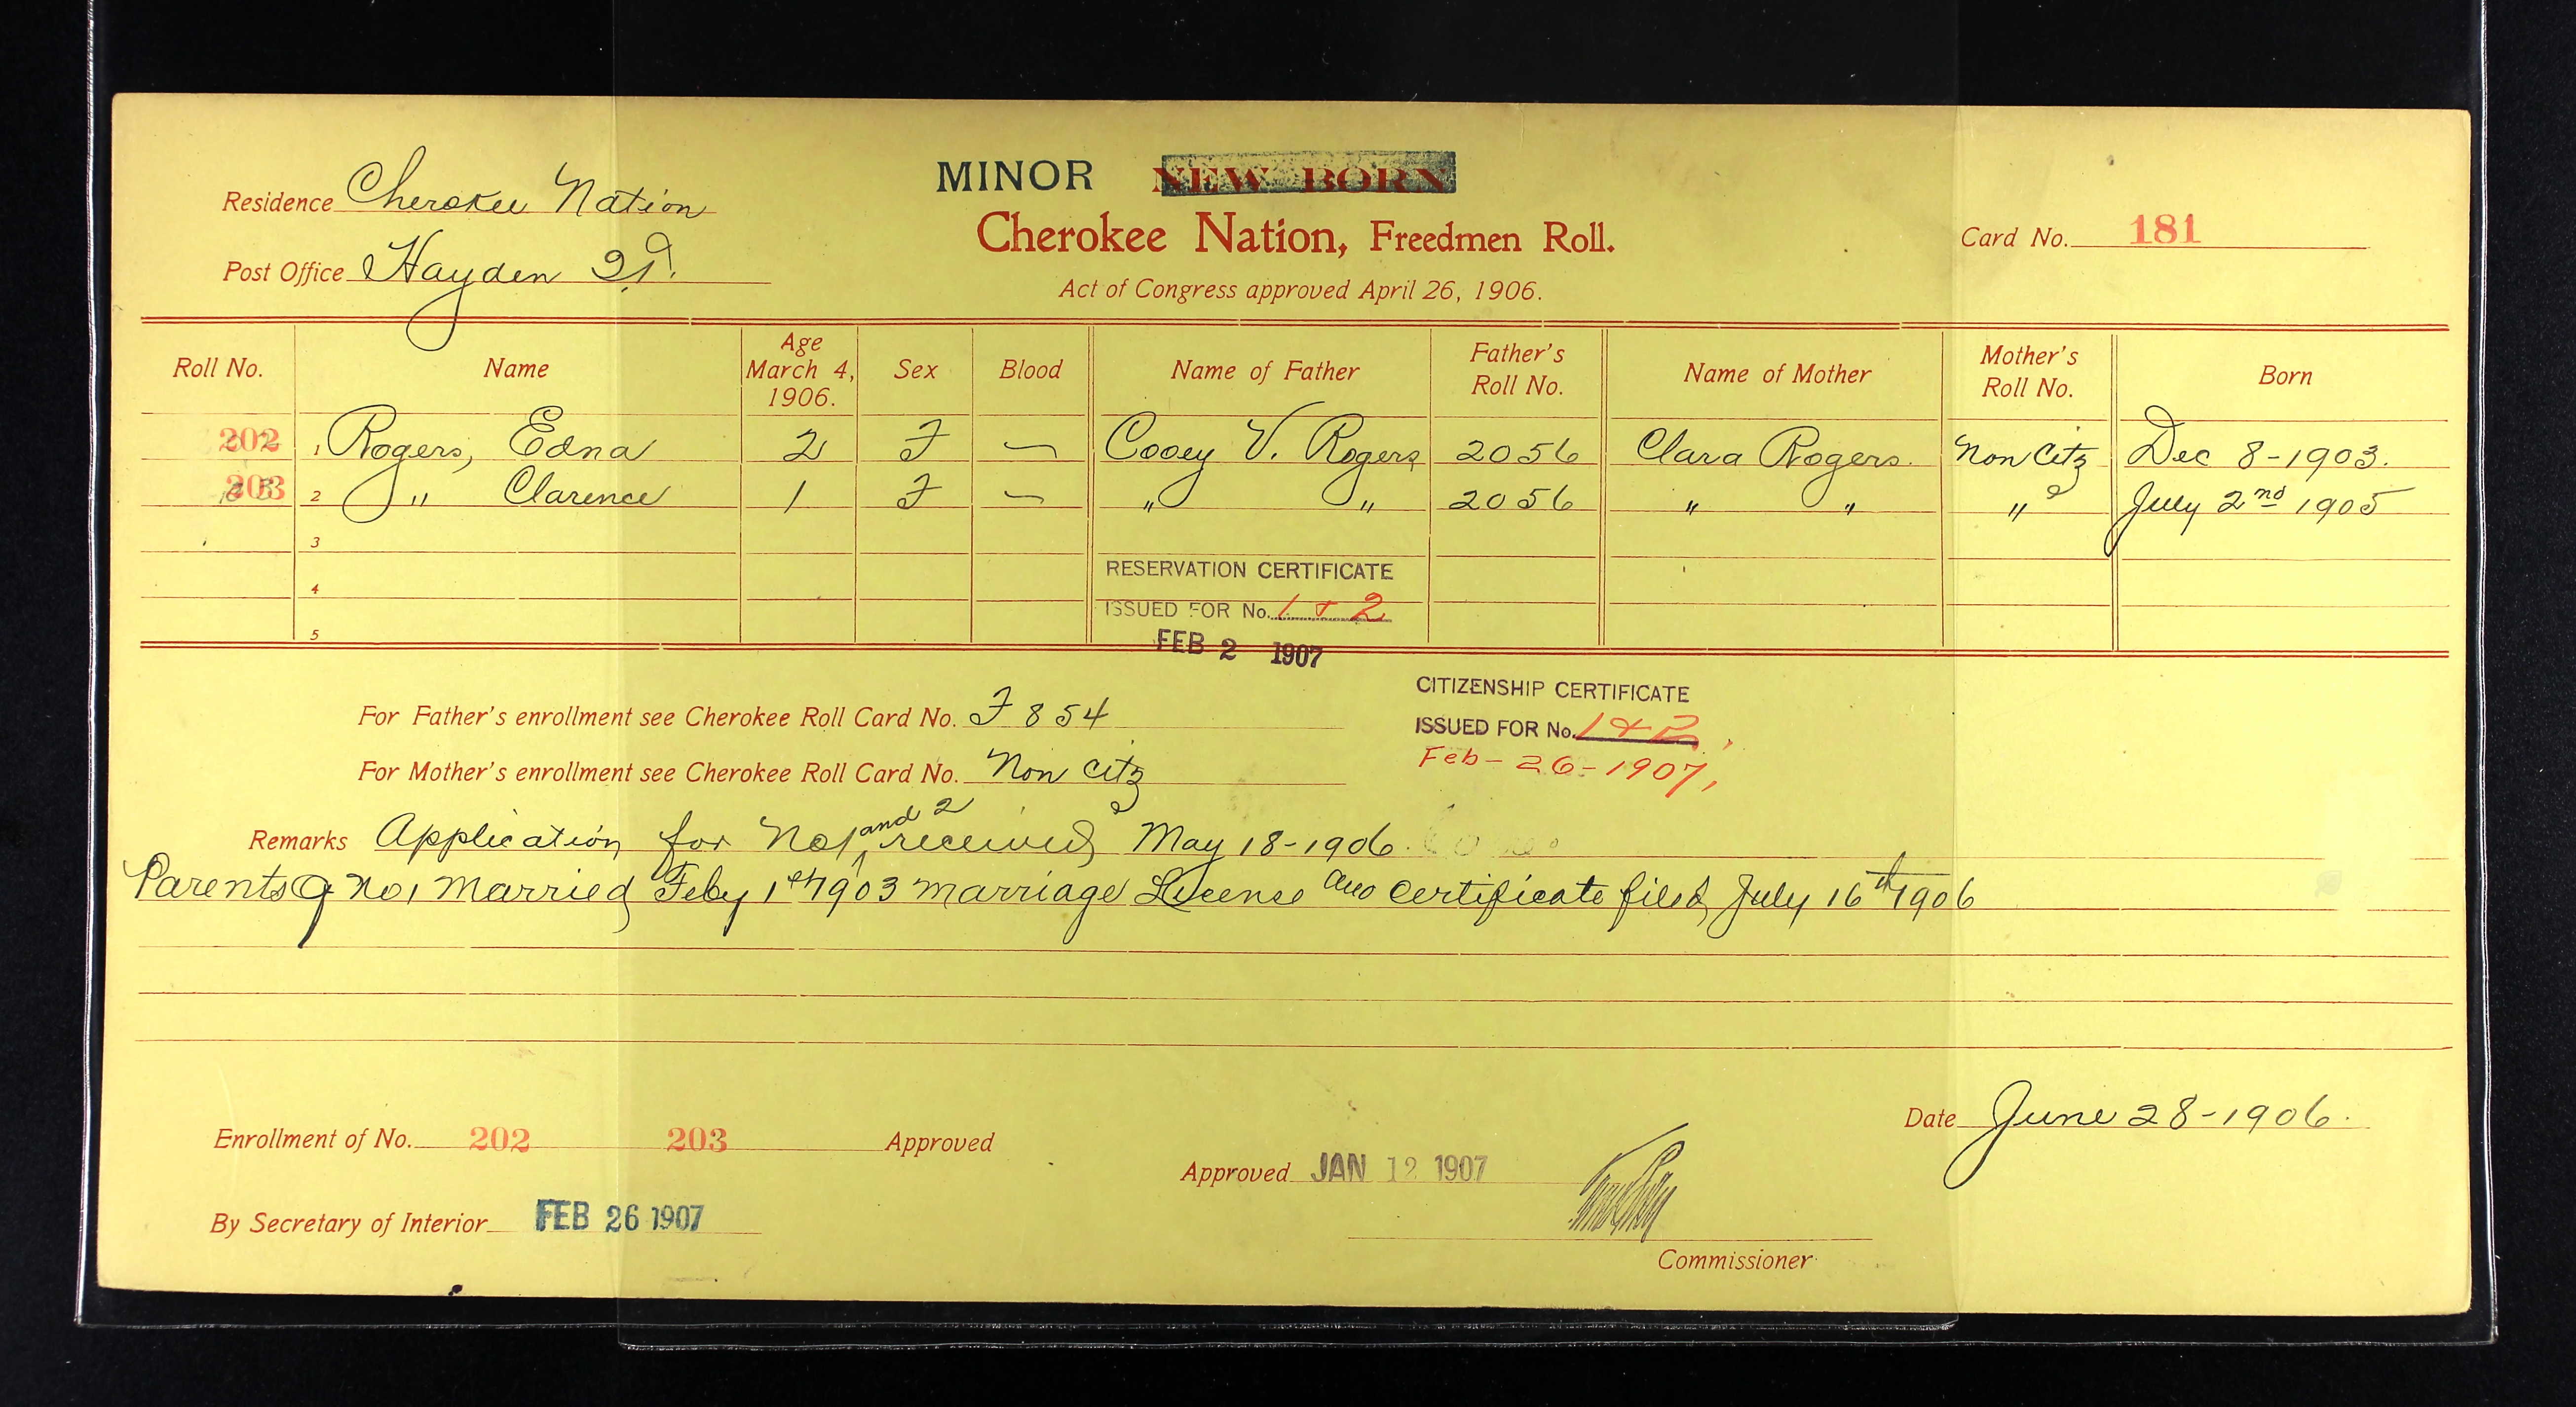 MINOR NEW BORN
Residence Cherokee Nation
Cherokee Nation, Freedmen Roll.
Card No. 181
Post Office Hayden I.T.
Act of Congress approved April 26, 1906.
Roll No. Name Age March 4, 1906. Sex Blood Name of Father Father's Roll No. Name of Mother Mother's Roll No. Born
202 1 Rogers, Edna 2 F — Cooey V. Rogers 2056 Clara Rogers. Non Citz Dec 8-1903.
203 2 " Clarence 1 F — " " 2056 " " " July 2nd 1905
3
RESERVATION CERTIFICATE
4
ISSUED FOR No. 1 & 2
5
FEB 2 1907
CITIZENSHIP CERTIFICATE
For Father's enrollment see Cherokee Roll Card No. F 854
ISSUED FOR No. 1 & 2,
Feb-26-1907,
For Mother's enrollment see Cherokee Roll Card No. Non Citz
Remarks Application for No 1 and 2 received May 18-1906.
Parents of No 1 married Feby 1st 1903 marriage License and certificate filed July 16th 1906
Date June 28-1906.
Enrollment of No. 202 203 Approved
Approved JAN 12 1907
By Secretary of Interior FEB 26 1907
Commissioner